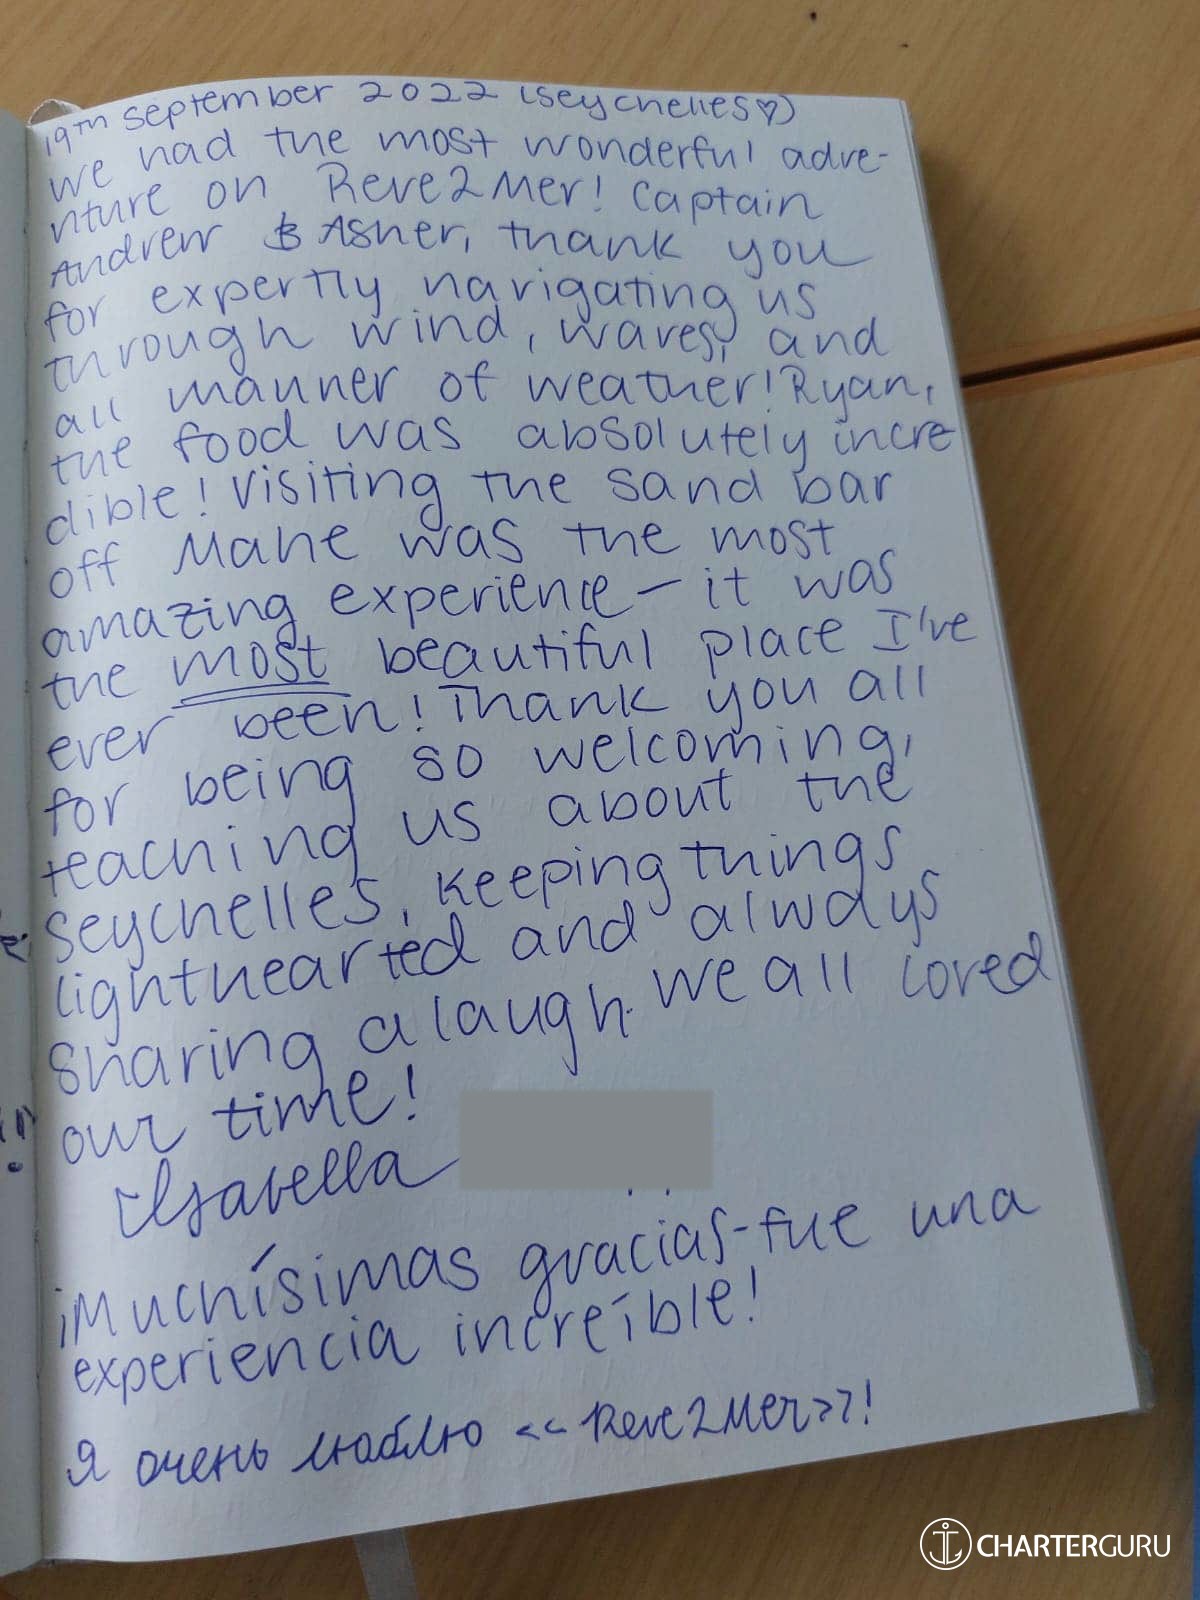 19TH September 2022 (Seychelles♡)
We had the most wonderful adve-
nture on Reve2Mer! Captain
Andrew & Asher, thank you
for expertly navigating us
through wind, waves, and
all manner of weather! Ryan,
the food was absolutely incre
dible! Visiting the sand bar
off Mahe was the most
amazing experience – it was
the most beautiful place I've
ever been! Thank you all
for being so welcoming,
teaching us about the
Seychelles, keeping things
lighthearted and always
sharing a laugh. We all loved
our time!
Isabella
¡Muchísimas gracias-fue una
experiencia increíble!
Я очень люблю <<Reve2Mer>>!
CHARTERGURU